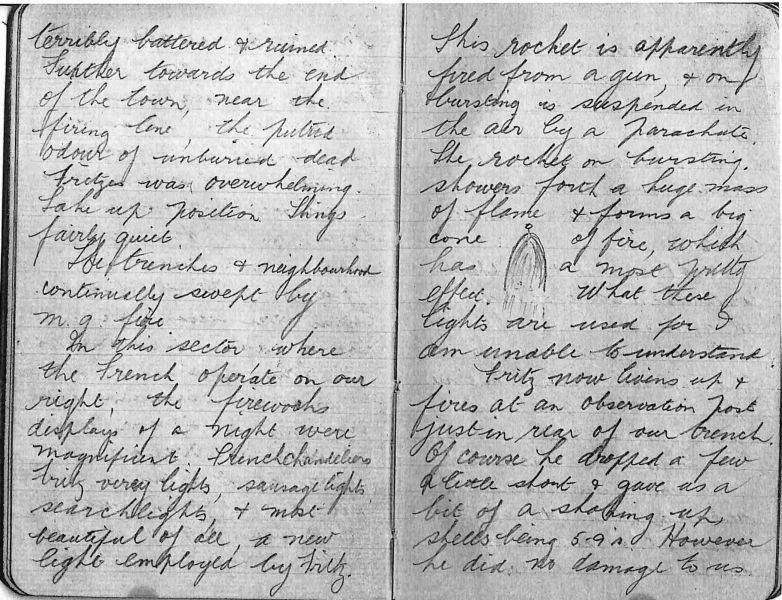 terribly battered & ruined.
Further towards the end
of the town, near the
firing line, the putrid
odour of unburied dead
fritzes was overwhelming.
Take up position. Things
fairly quiet.
The trenches & neighbourhood
continually swept by
m.g. fire
In this sector where
the French operate on our
right, the fireworks
displays of a night were
magnificent. French chandeliers
fritz verey lights, sausage lights,
searchlights, & most
beautiful of all, a new
light employed by Fritz.
This rocket is apparently
fired from a gun, & on
bursting is suspended in
the air by a parachute.
The rocket on bursting,
showers forth a huge mass
of flame & forms a big
cone of fire, which
has a most pretty
effect. What these
lights are used for I
am unable to understand.
Fritz now livens up &
fires at an observation post
just in rear of our trench,
Of course he dropped a few
a little short & gave us a
bit of a shaking up,
shells being 5.9s. However
he did no damage to us.